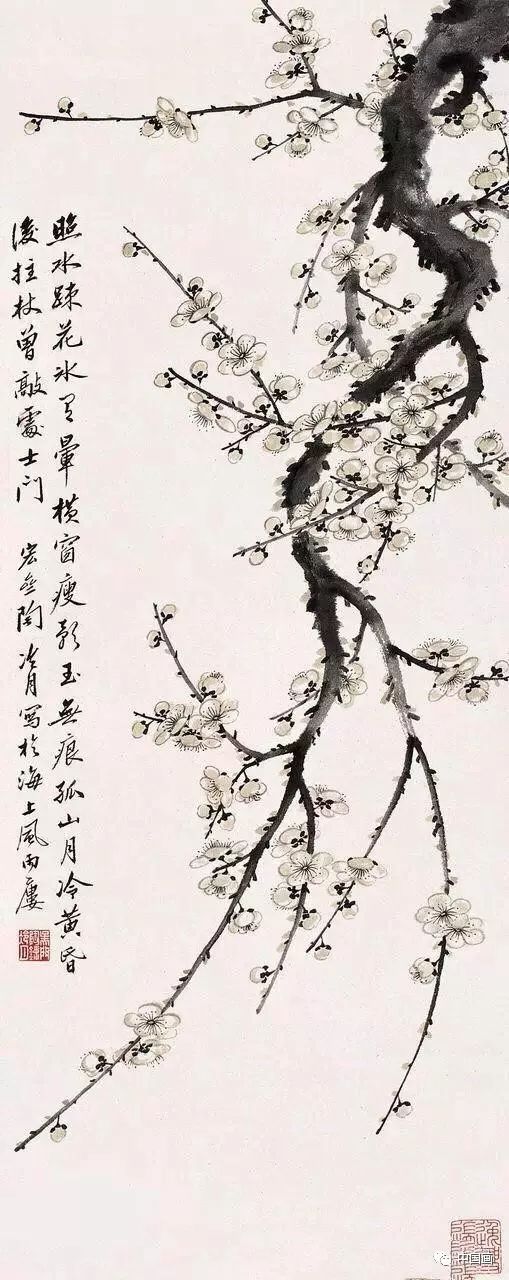 照水疎花冰有暈橫窗瘦影玉無痕孤山月冷黃昏
後拄杖曾敲處士門 宏盦陶冷月寫於海上風雨廔
中国画